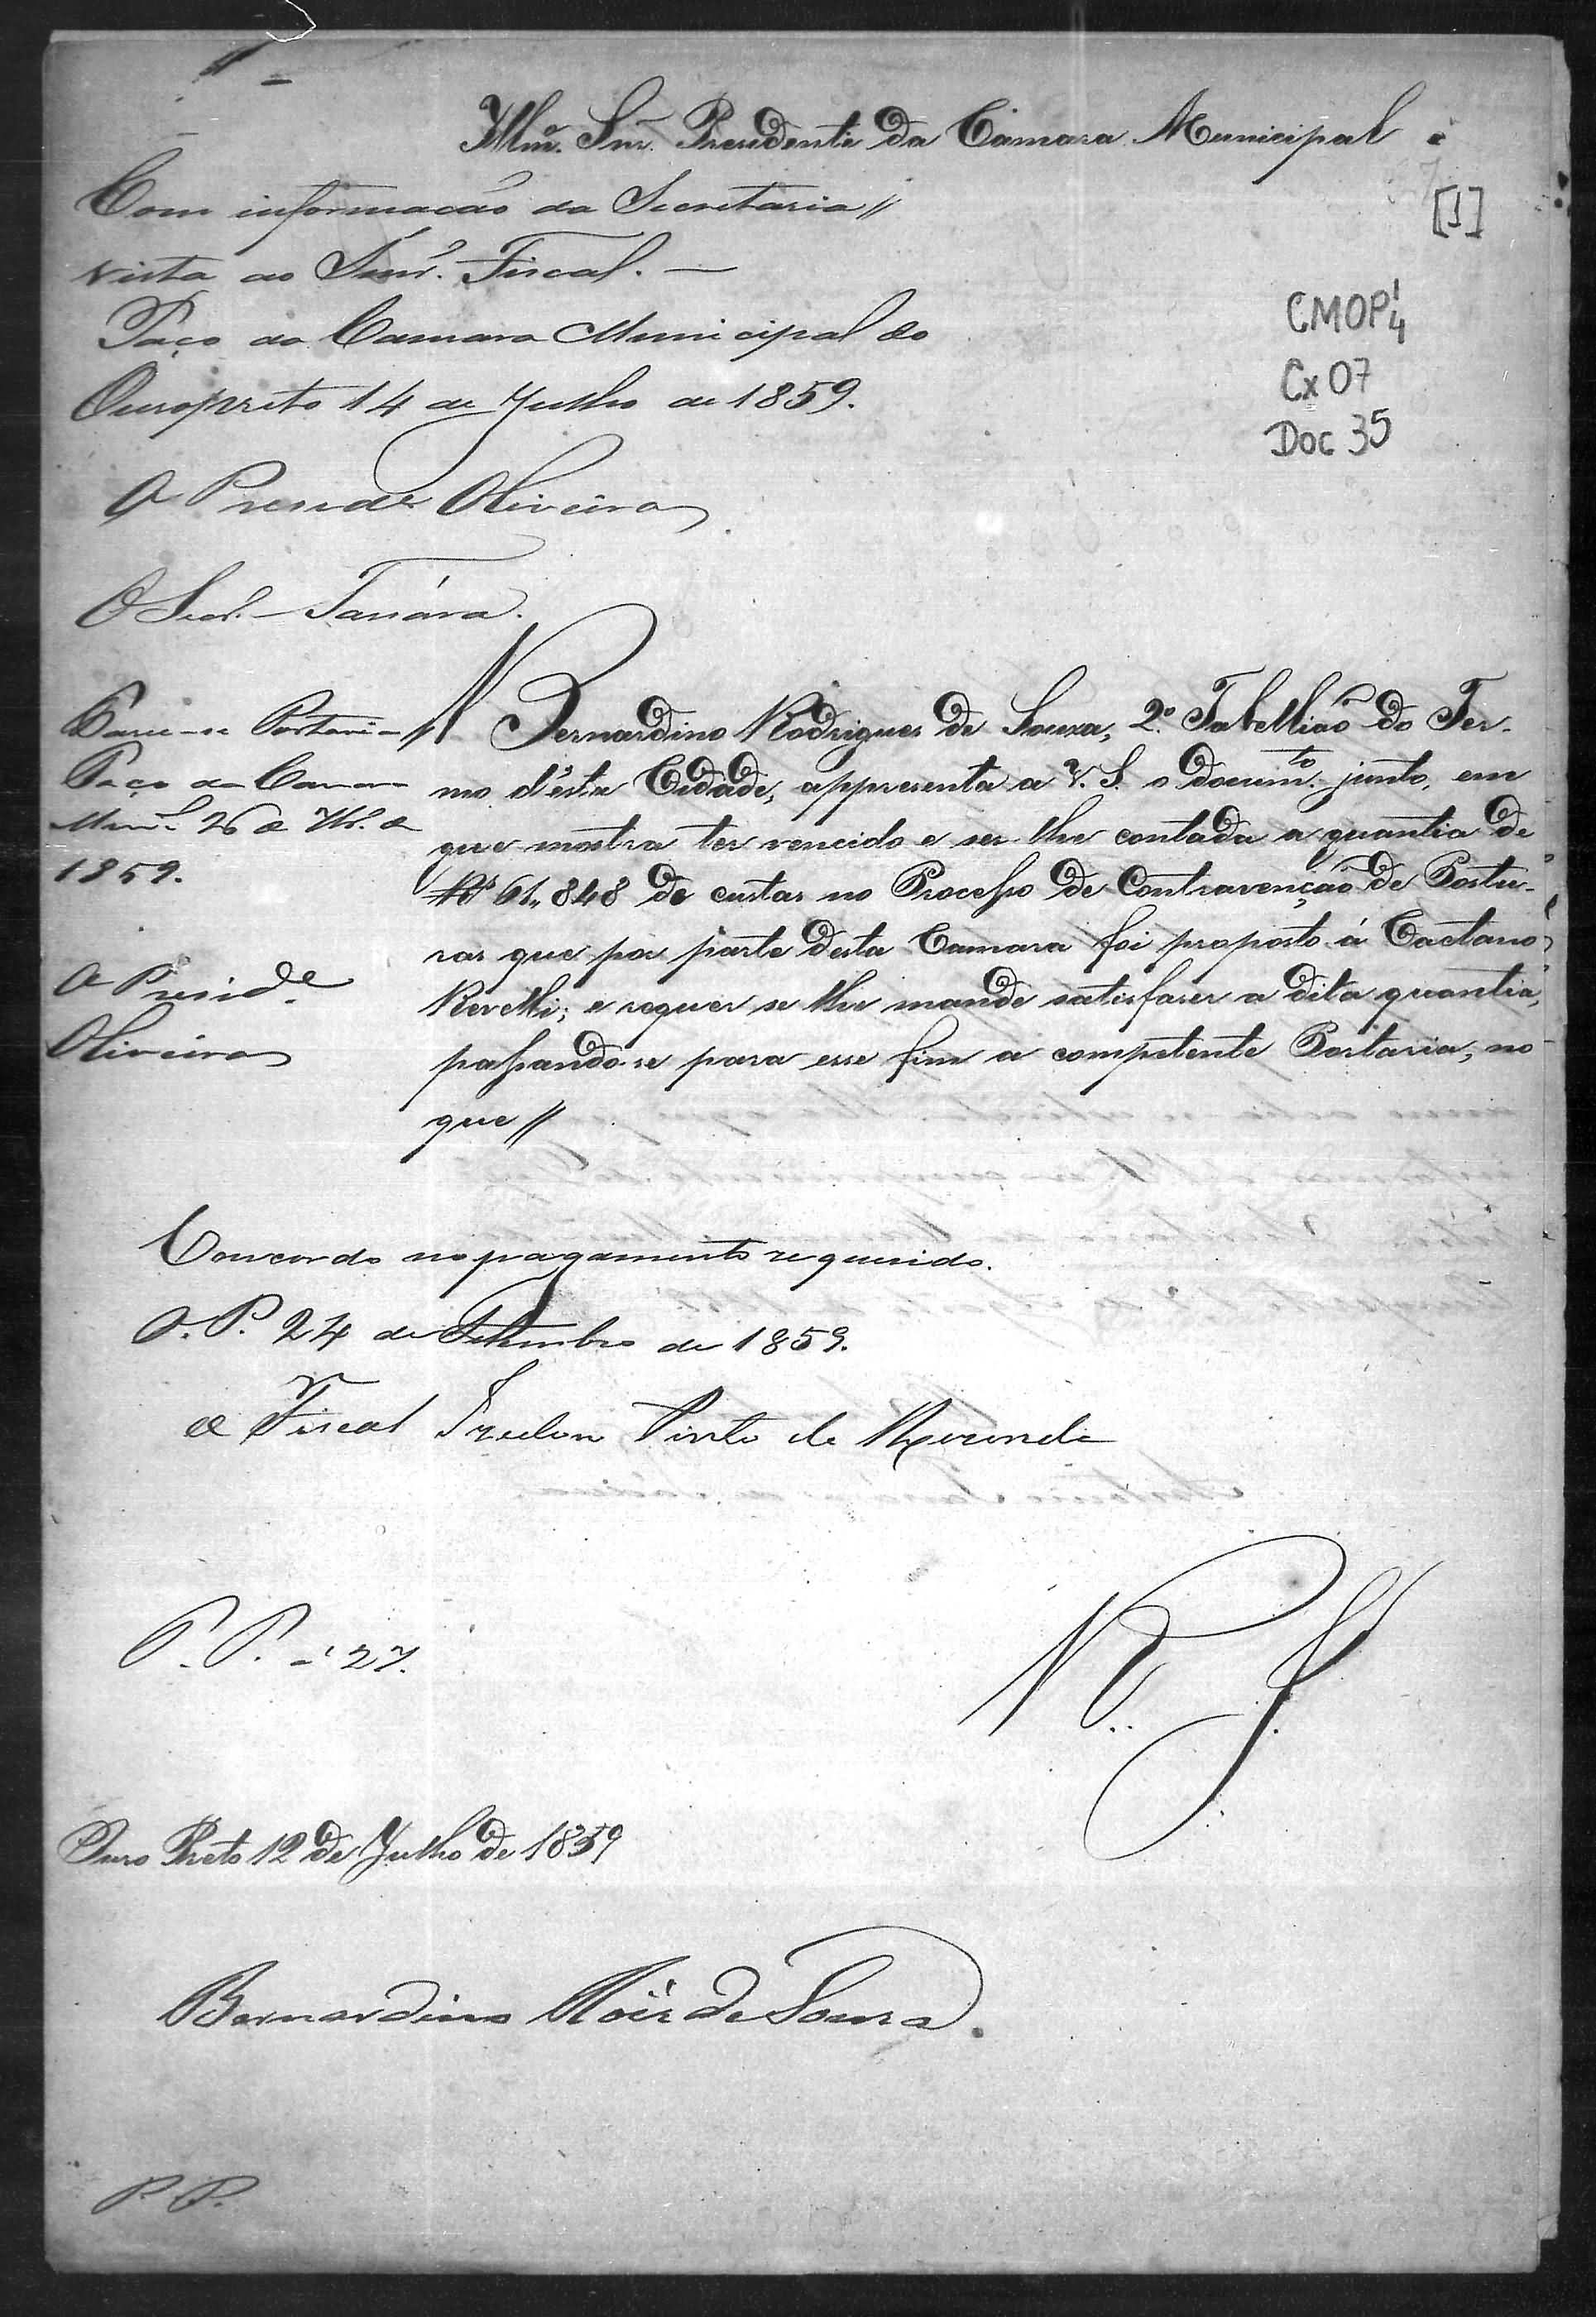 Illmo. Snr. Presidente da Camara Municipal
Com informação da Secretaria //
vista ao Senr. Fiscal. —
Paço da Camara Municipal do
Ouropreto 14 de Julho de 1859.
O Preside Oliveira
O Secr.
[1]
CMOP 1/4
Cx 07
Doc 35
Passe-se Portaria
Paço da Camara
Munl. 26 de 7br. de
1859.
O Preside.
Oliveira
Bernardino Rodrigues de Souza, 2º Tabellião do Ter-
mo d'ésta Cidade, appresenta a V. S. o documto. junto, em
que mostra ter vencido e ser-lhe contada a quantia de
Rs 61,,848 de custas no Processo de Contravenção de Postu-
ras que por parte desta Camara foi proposto á Caetano
; e requer se lhe mande satisfazer a dita quantia,
passando-se para esse fim a competente Portaria, no
que //
Concordo no pagamento requerido.
O. P. 24 de Setembro de 1859.
O Fiscal Pinto de
P. P. a 27.
Ouro Preto 12 de Julho de 1859
Bernardino Roiz de Souza.
P. P.